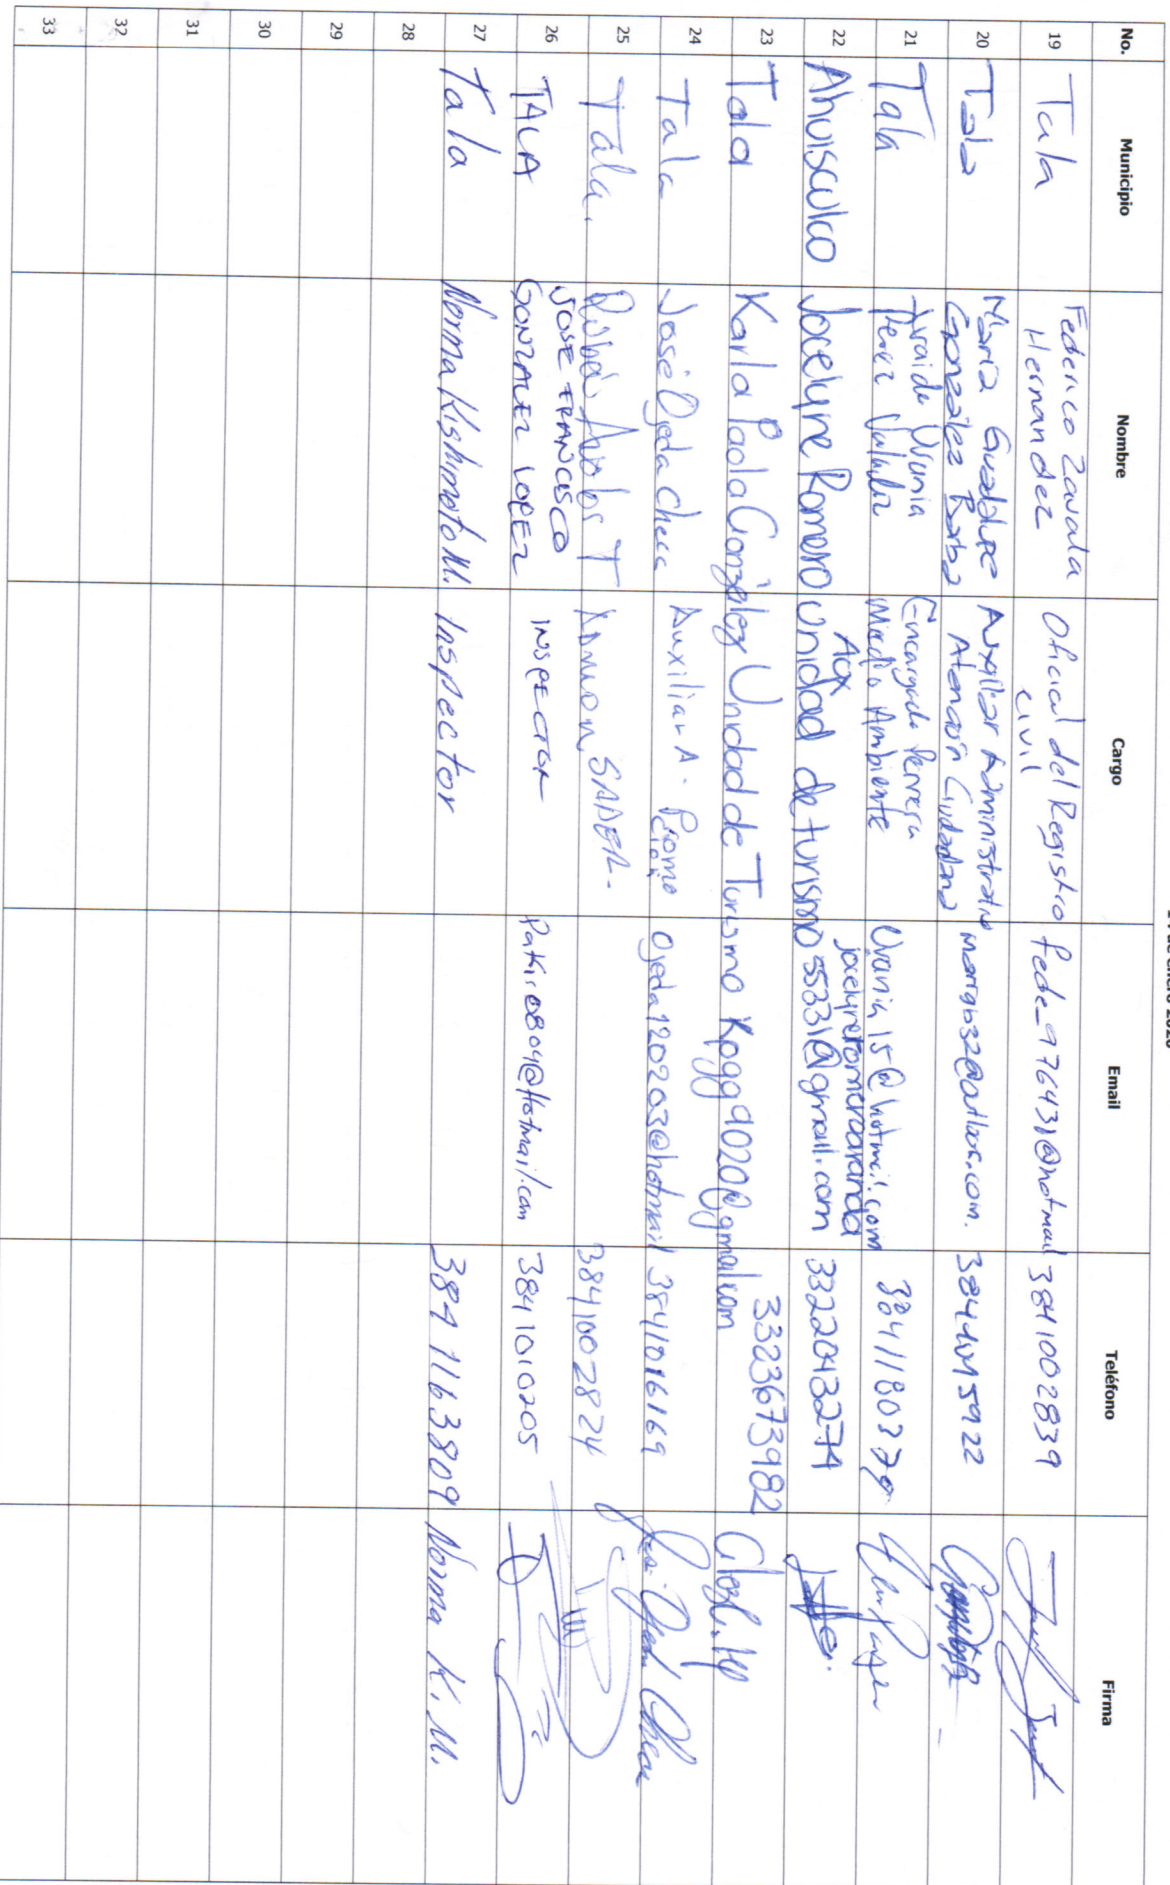 No. Municipio Nombre Cargo Email Teléfono Firma
19 Tala Federico Zavala Hernandez Oficial del Registro civil fede_976431@hotmail 3841002839
20 Tala Maria Guadalupe González Barba Auxiliar Administrativo Atención Ciudadana 3844015922
21 Tala Urania Perez Encargada Perrera Medio Ambiente Urania15@hotmail.com 3841180379
22 Ahuisculco Jocelyne Romero Aux Unidad de turismo jocelyneromeroaranda 55331@gmail.com 3322043274
23 Tala Karla Paola González Unidad de Turismo Kpgg9020@gmail.com 3323673982
24 Tala José Ojeda Checa Auxiliar A. Promo Ojeda120203@hotmail 3841016169
25 Tala. T SADER. 3841002824
26 TALA JOSE FRANCISCO GONZALEZ LOPEZ INSPECTOR Pakiro804@Hotmail.com 3841010205
27 Tala Norma Kishimoto M. Inspector 3841163809 Norma K. M.
28
29
30
31
32
33